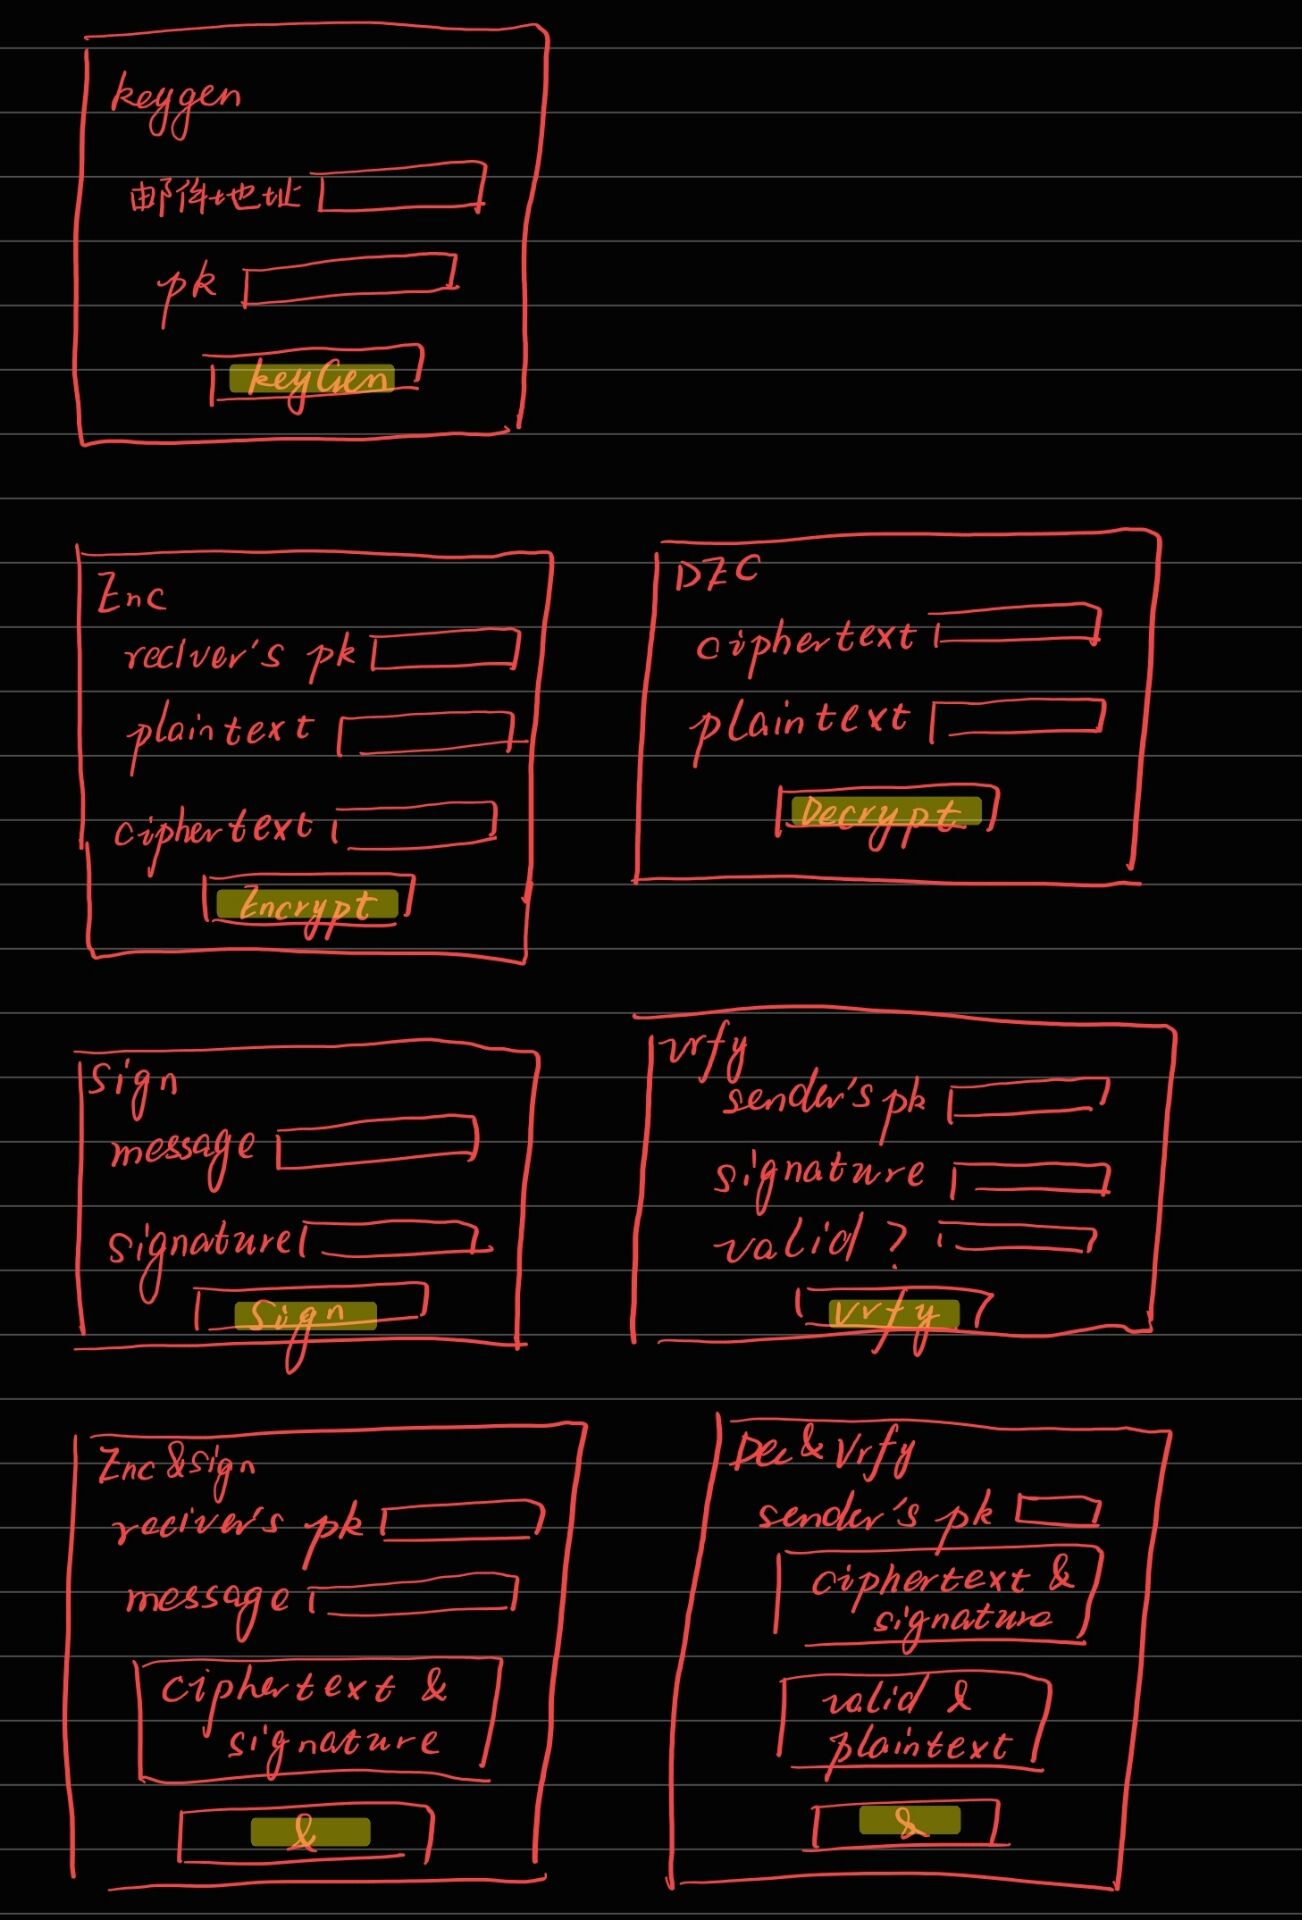 keygen
邮件地址
pk
keyGen
Enc
reciver's pk
plaintext
ciphertext
Encrypt
DEC
ciphertext
plaintext
Decrypt
Sign
message
signature
Sign
vrfy
sender's pk
signature
valid ?
Vrfy
Enc &sign
reciver's pk
message
ciphertext &
signature
&
Dec & Vrfy
sender's pk
ciphertext &
signature
valid &
plaintext
&